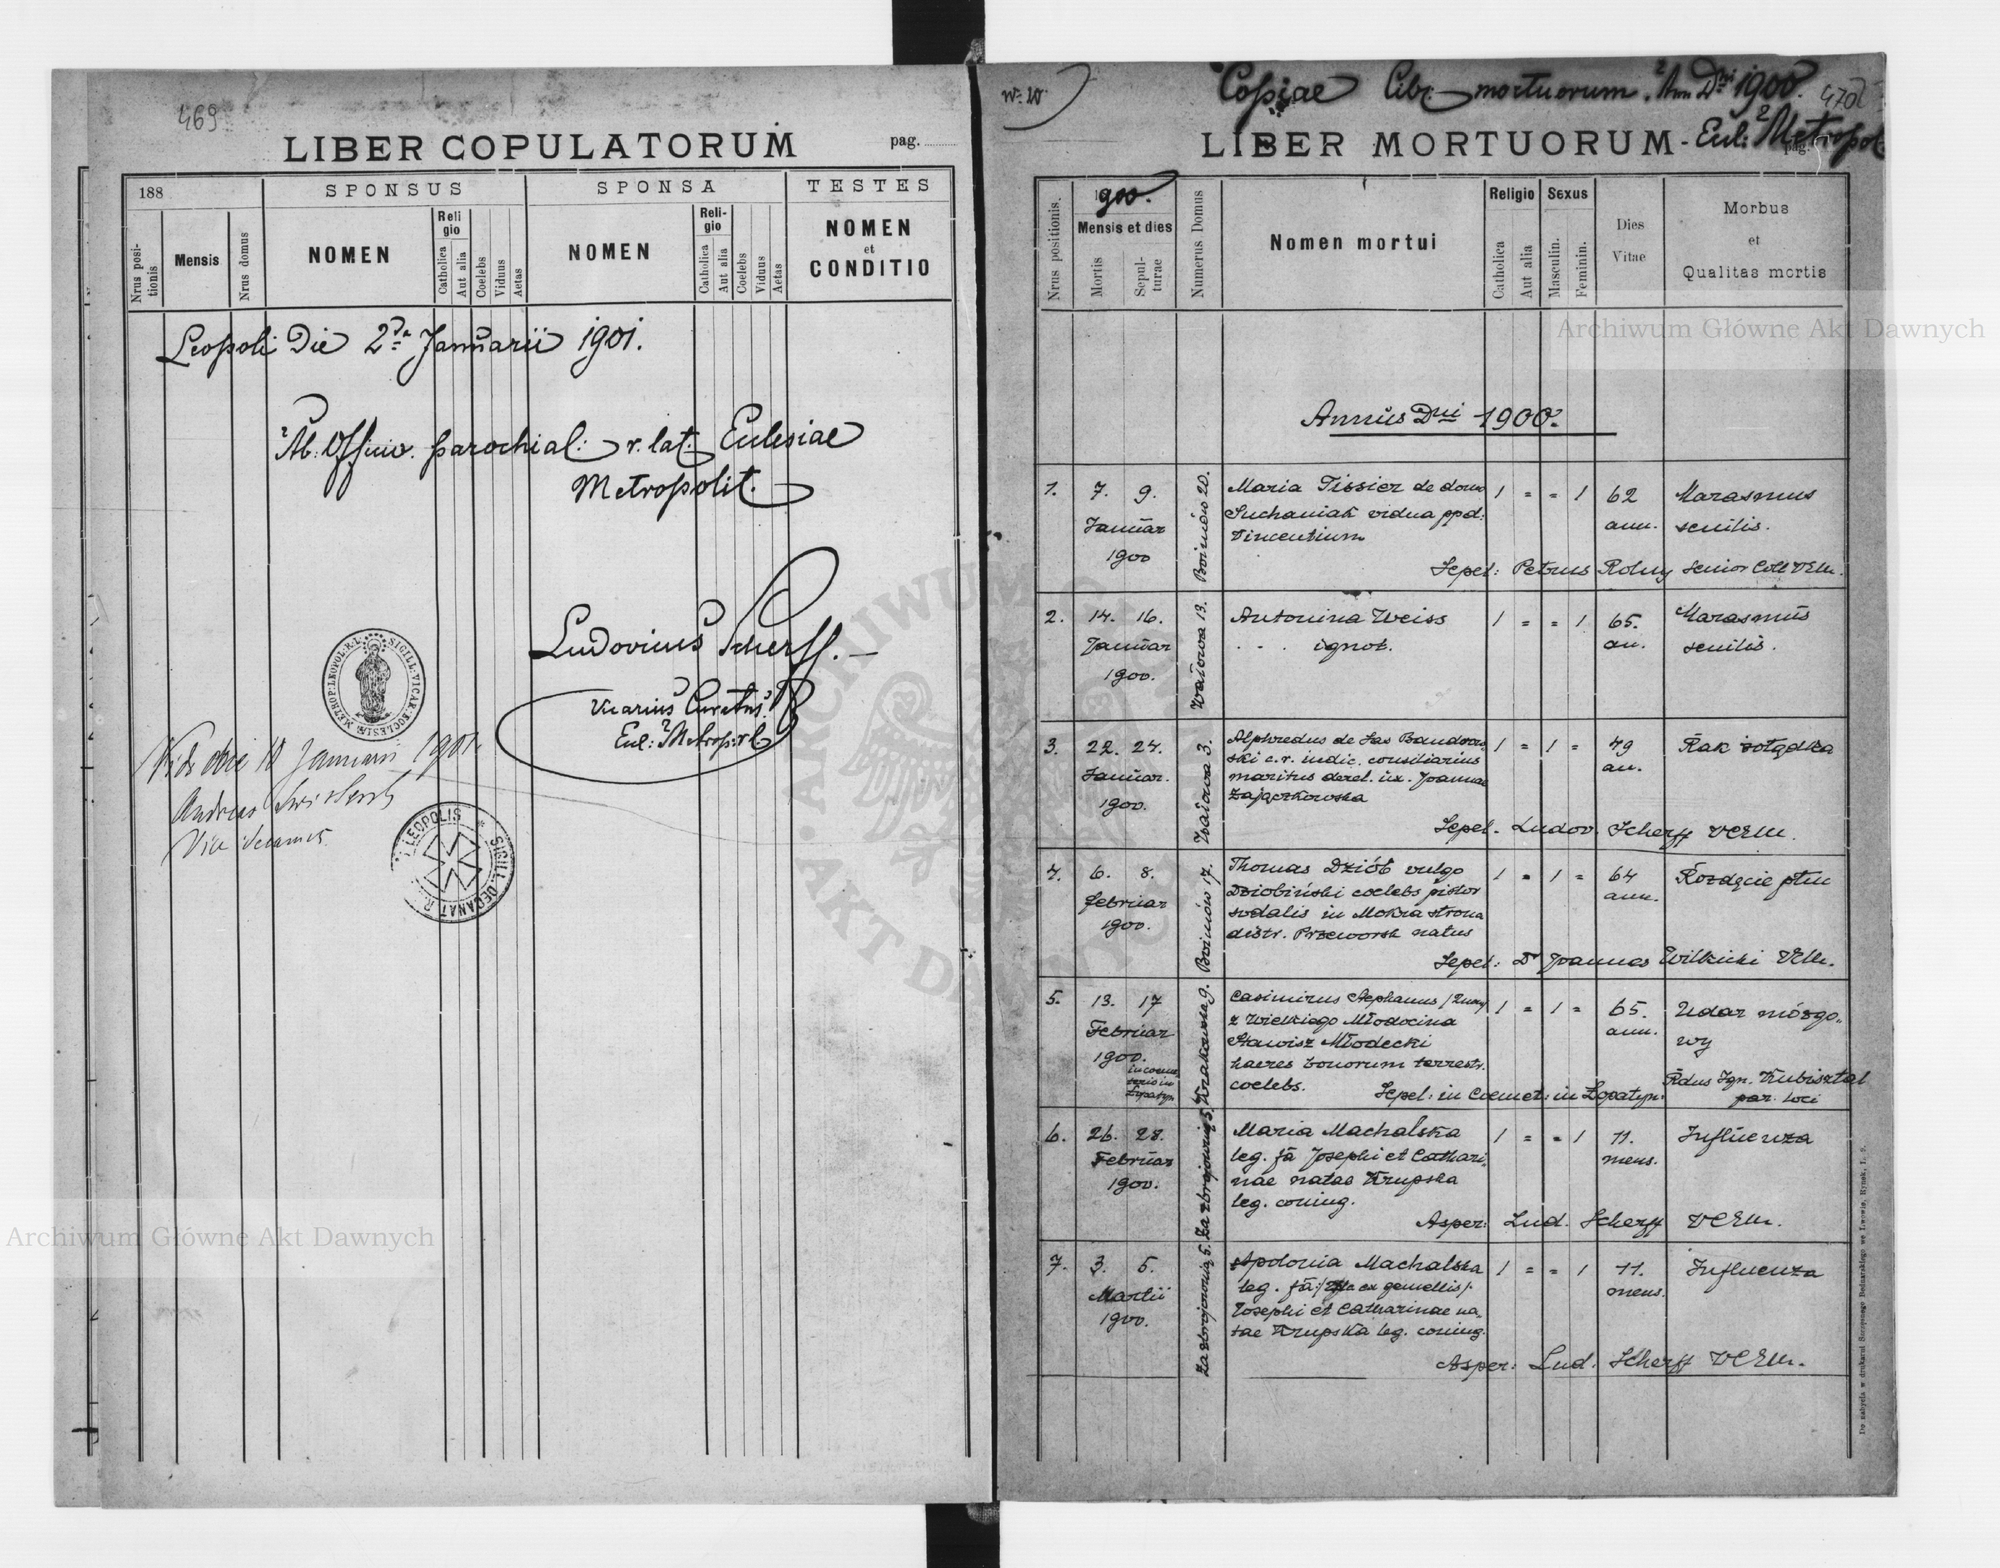 469
LIBER COPULATORUM
pag.
188
SPONSUS
SPONSA
TESTES
Nrus posi-
tionis
Mensis
Nrus domus
NOMEN
Reli
gio
Catholica
Aut alia
Coelebs
Viduus
Aetas
NOMEN
Reli-
gio
Catholica
Aut alia
Coelebs
Viduus
Aetas
NOMEN
et
CONDITIO
Leopoli Die 2da Januarii 1901.
Ab. Officio. parochial: r. lat. Ecclesiae
Metropolit.
Ludovicus Scherff.
Vicarius Curatus
Eccl: Metrop: r. l.
SIGILL. VICAR. ECCLESIÆ METROP. LEOPOL. R. L.
Vidi die 10 Januarii 1901.
Andreas
Vice decanus
LEOPOLIS * SIGILL. DECANAT. R.
nr. 20
Copiae Libr. mortuorum. Ann Dni 1900.
470
LIBER MORTUORUM - Eccl: Metropol
pag.
Nrus positionis.
1900.
Mensis et dies
Mortis
Sepul-
turae
Numerus Domus
Nomen mortui
Religio
Catholica
Aut alia
Sexus
Masculin.
Feminin.
Dies
Vitae
Morbus
et
Qualitas mortis
Annus Dni 1900.
1. 7. 9. Maria Tissier de domo 1 = = 1 62 Marasmus
Januar Suchaniak vidua ppd: ann. senilis.
1900 Vincentium
Boimów 20.
Sepel: Petrus Rolny senior Coll VEM.
2. 14. 16. Antonina Weiss 1 = = 1 65. Marasmus
Januar . . . ignot. an. senilis.
1900.
Wałowa 13.
3. 22. 24. Alphredus de Sas Bandrow 1 = 1 = 49 Rak żołądka
Januar. ski c. r. iudic. consiliarius an.
1900. maritus derel. ux. Joannae
Zajączkowska
Wałowa 3.
Sepel. Ludov. Scherff VCEM.
4. 6. 8. Thomas Dziób vulgo 1 = 1 = 64 Rozdęcie płuc
februar Dziobiński coelebs pistor ann.
1900. sodalis in Mokra strona
distr. Przeworsk natus
Boimów 17.
Sepel: Dr Joannes Wilkicki VEM.
5. 13. 17 Casimirus Stephanus 1 = 1 = 65. Udar mózgo„
Februar z Wielkiego Młodocina ann. wy
1900. Stawisz Młodecki
in coeme
terio in
Łopatyn
haeres bonorum terrestr.
coelebs.
Krakowska 9.
Sepel: in Coemet: in Łopatyn: Rdus Ign. Kubisztal
par. loci
6. 26. 28. Maria Machalska 1 = = 1 11. Influenza
Februar leg. fa Josephi et Cathari, mens.
1900. nae natae Krupska
leg. coniug.
Zazbrojownią 5.
Asper: Lud. Scherff VCEM.
7. 3. 5. Apolonia Machalska 1 = = 1 11. Influenza
Martii leg. fa ex gemellis/. mens.
1900. Josephi et Catharinae na,
tae Krupska leg. coniug.
Zazbrojownią 5.
Asper: Lud. Scherff VCEM.
Do nabycia w drukarni Szczęsnego Bednarskiego we Lwowie, Rynek, L. 9.
Archiwum Główne Akt Dawnych
Archiwum Główne Akt Dawnych
ARCHIWUM
AKT DAWNYCH